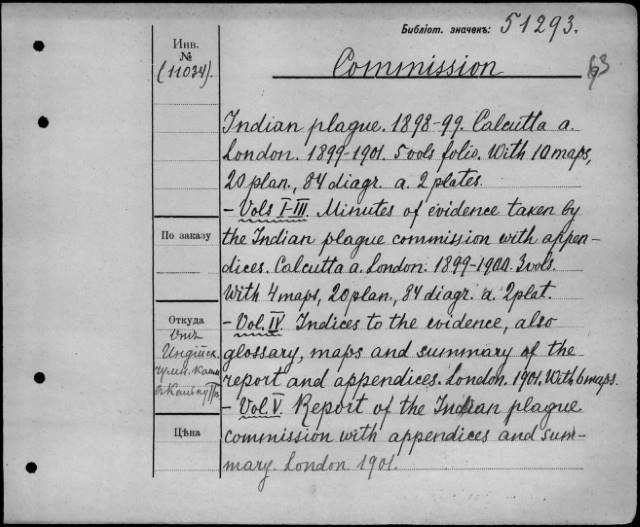 Библіот. значекъ: 51293.
Инв.
№
(11034).
Commission
63
Indian plague. 1898-99. Calcutta a.
London. 1899-1901. 5 vols folio. With 10 maps,
20 plan., 84 diagr. a. 2 plates.
- Vols I-III. Minutes of evidence taken by
the Indian plague commission with appen-
dices. Calcutta a. London. 1899-1900. 3 vols.
With 4 maps, 20 plan., 84 diagr. a. 2 plat.
- Vol. IV. Indices to the evidence, also
glossary, maps and summary of the
report and appendices. London. 1901. With 6 maps.
- Vol. V. Report of the Indian plague
commission with appendices and sum-
mary. London 1901.
По заказу
Откуда
Отъ
Индійск.
чумн.
Цѣна